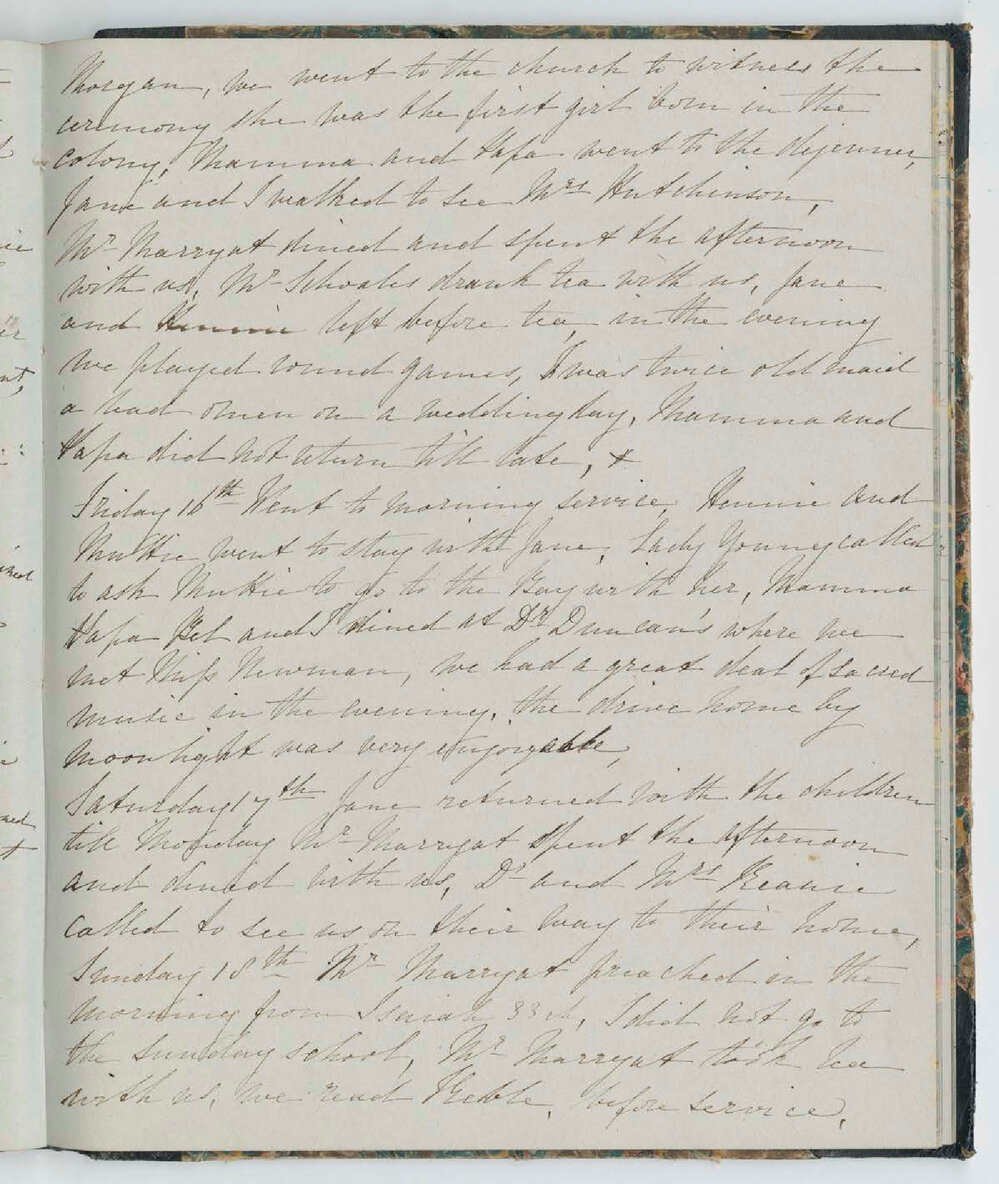 Morgan, we went to the church to witness the
ceremony she was the first girl born in the
colony, Mamma and Papa went to the dejeuner,
Jane and I walked to see Mrs Hutchinson,
Mr Marryat dined and spent the afternoon
with us, Mr Schoales drank tea with us, Jane
and Hennie left before tea, in the evening
we played round games, I was twice old maid
a bad omen on a wedding day, Mamma and
Papa did not return till late, x
Friday 16th Went to morning service, Hennie and
Muttie went to stay with Jane, Lady Young called
to ask Muttie to go to the Bay with her, Mamma
Papa and I dined at Dr Duncan's where we
met Miss Newman, we had a great deal of sacred
music in the evening, the drive home by
moonlight was very enjoyable,
Saturday 17th Jane returned with the children
till Monday Mr Marryat spent the afternoon
and dined with us, Dr and Mrs
called to see us on their way to their home,
Sunday 18th Mr Marryat preached in the
morning from Isaiah 33rd, I did not go to
the sunday school, Mr Marryat took tea
with us, we read Keble, before service,